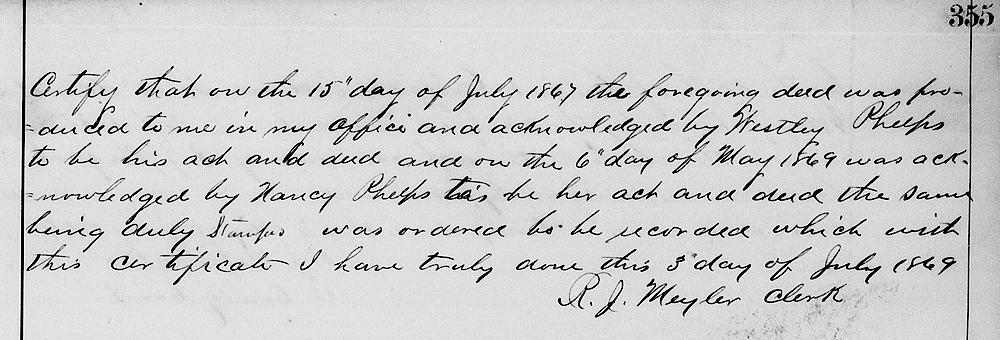 355
Certify that on the 15" day of July 1867 the foregoing deed was pro-
=duced to me in my office and acknowledged by Westley Phelps
to be his act and deed and on the 6" day of May 1869 was ack-
=nowledged by Nancy Phelps to be her act and deed the same
being duly was ordered to be recorded which with
this certificate I have truly done this 3" day of July 1869
R. J. Meyler Clerk